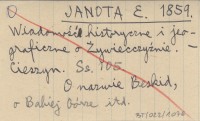 O JANOTA E. 1859.
Wiadomość historyczna i jeo-
graficzna o Żywiecczyźnie. -
Cieszyn. Ss. 105.
O nazwie Beskid,
o Babiej Górze itd.